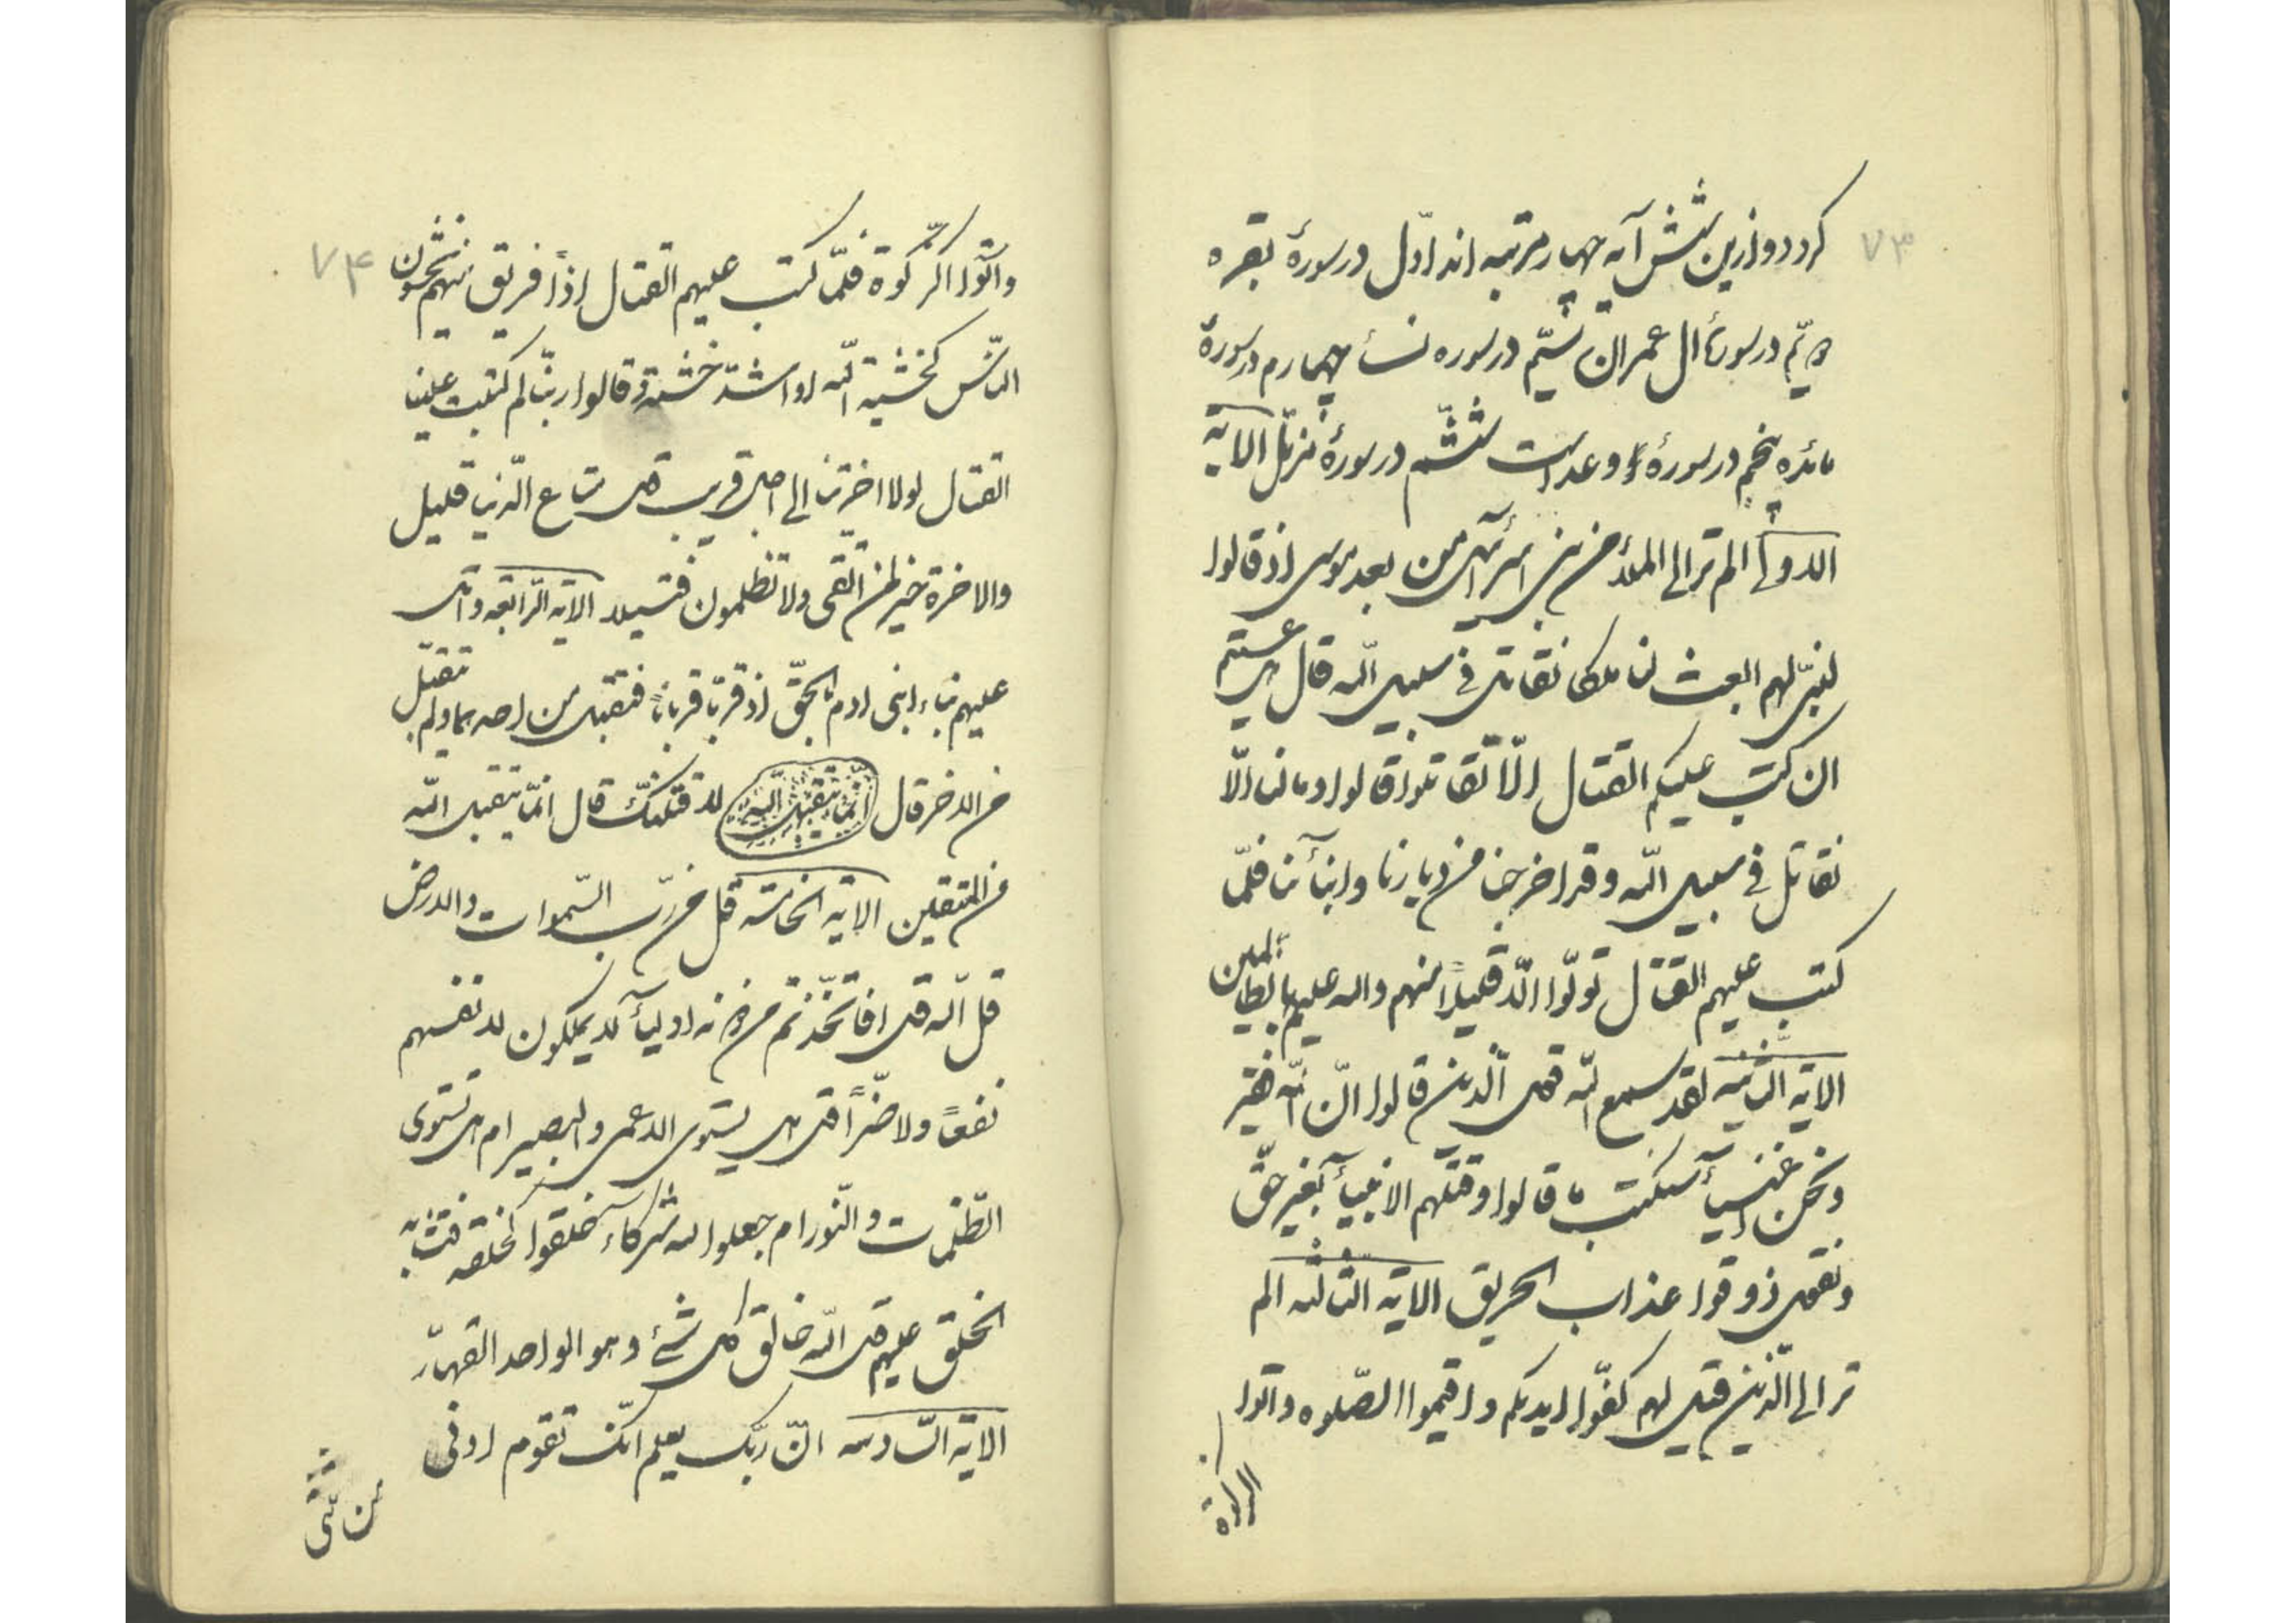 ۷۳
کردد و ازین شش آیه چهار مرتبه اند اوّل در سورۀ بقره
دویّم در سورۀ ال عمران سیّم در سوره نسأ چهارم در سورۀ
مائده پنجم در سورۀ رعد است ششم در سورۀ مزمّل الایة
الاولی الم تر الی الملأ من بنی اسرآئیل من بعد موسی اذ قالوا
لنبیّ لهم ابعث لنا ملکا نقاتل فی سبیل الله قال هل عسیتم
ان کتب علیکم القتال الّا تقاتلوا قالوا و ما لنا الّا
نقاتل فی سبیل الله و قد اخرجنا من دیارنا و ابنآئنا فلمّا
کتب علیهم القتال تولّوا الّا قلیلاً منهم والله علیم بالظالمین
الایة الثانیه لقد سمع الله قول الّذین قالوا انّ الله فقیر
و نحن اغنیآء سنکتب ما قالوا و قتلهم الانبیآء بغیر حقّ
و نقول ذوقوا عذاب الحریق الایة الثالثه الم
تر الی الّذین قیل لهم کفّوا ایدیکم و اقیموا الصّلوه و اتوا
الزکوة
۷۴
و اتوا الزّکوة فلمّا کتب علیهم القتال اذاً فریق منهم یخشون
النّاس کخشیة الله او اشدّ خشیة و قالوا ربّنا لم کتبت علینا
القتال لولا اخرتنا الی اجل قریب قل متاع الدّنیا قلیل
والاخرة خیر لمن اتّقی ولا تظلمون فتیلا الایة الرّابعه و اتل
علیهم نباء ابنی ادم بالحقّ اذ قرّبا قرباناً فتقبل من احدهما و لم یتقبّل
من الاخر قال انّما یتقبل الله لاقتلنّک قال انّما یتقبل الله
من المتقین الایة الخامسه قل من ربّ السّموات والارض
قل الله قل افاتّخذتم من دونه اولیآء لا یملکون لانفسهم
نفعاً ولا ضرّاً قل هل یستوی الاعمی والبصیر ام هل تستوی
الظّلمات و النّور ام جعلوا لله شرکاء خلقوا کخلقه فتشابه
الخلق علیهم قل الله خالق کل شیٔ و هو الواحد القهّار
الایة السّادسه انّ ربّک یعلم انّک تقوم ادنی
من ثلثی